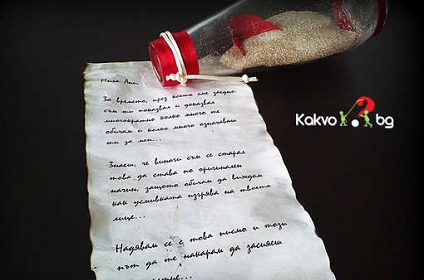 Мила Ани,
За времето, през което сме заедно,
съм ти показвал и доказвал
многократно колко много те
обичам и колко много означаваш
ти за мен...
Знаеш, че винаги съм се старал
това да става по оригинален
начин, защото обичам да виждам
как усмивката изгрява на твоето
лице...
Надявам се с това писмо и този
път да те накарам да засияеш
Kakvo?bg